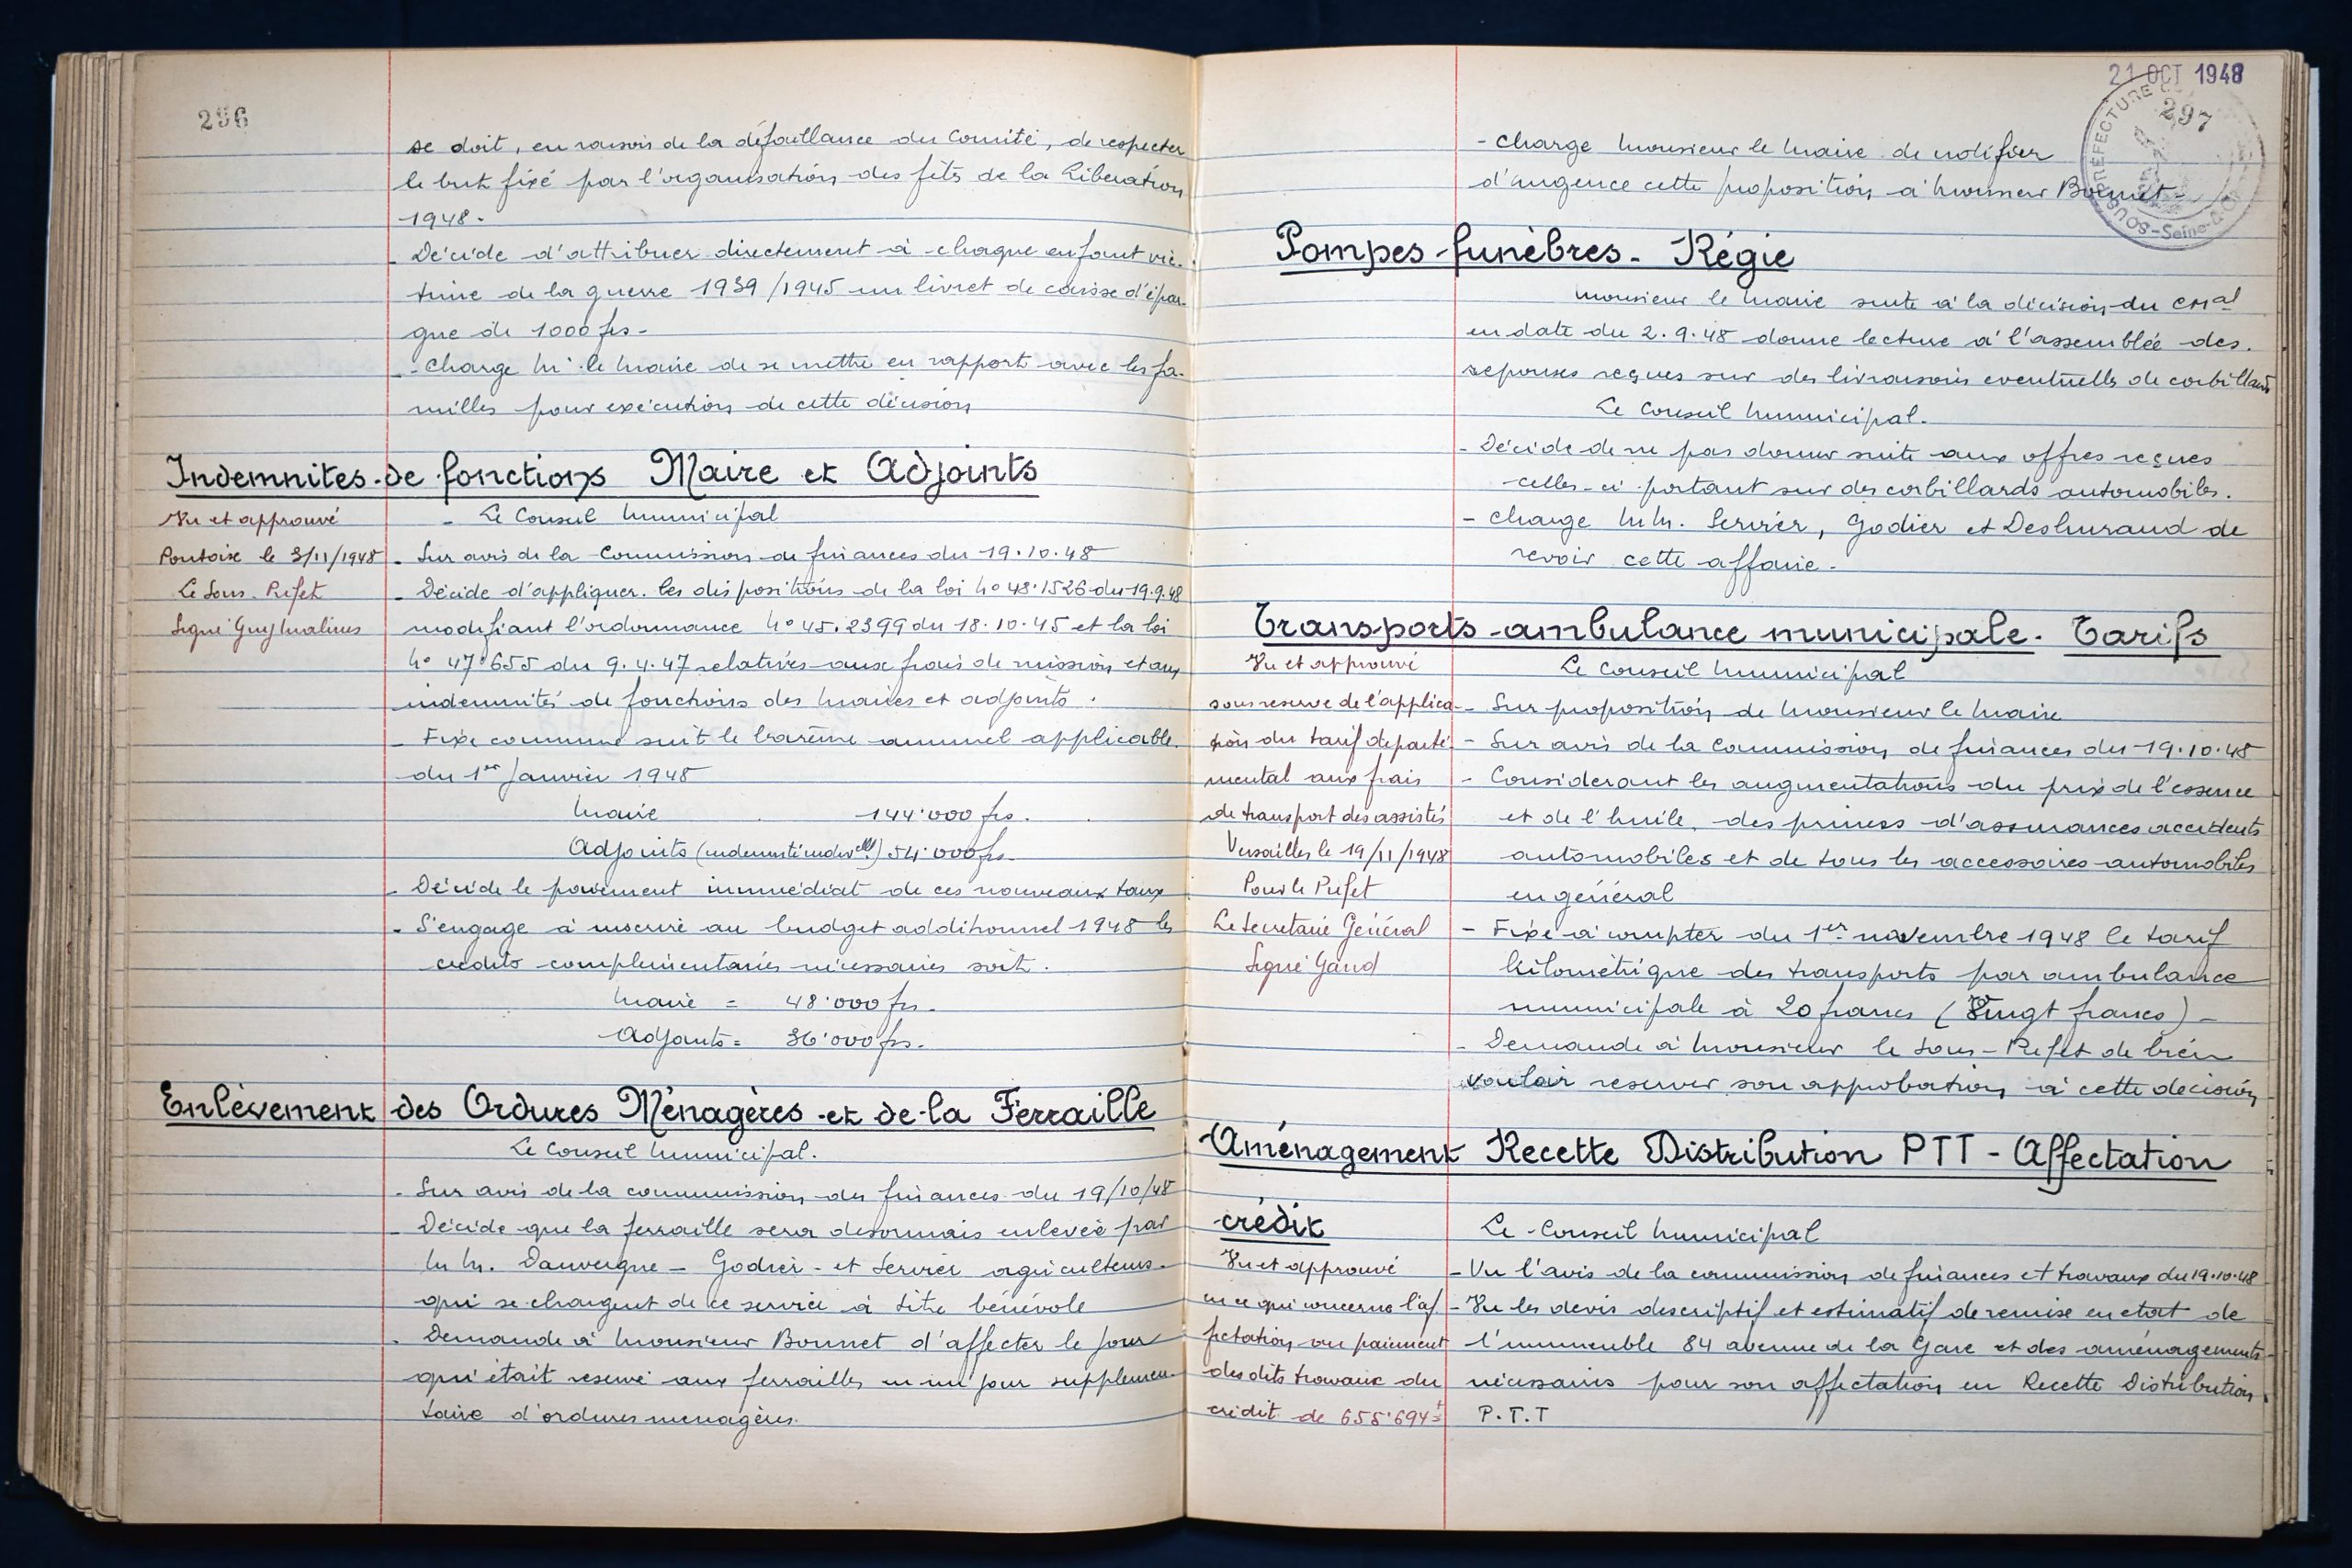 296
se doit, en raison de la défaillance du Comité, de respecter
le but fixé par l'organisation des fêts de la Libération
1948.
- Décide d'attribuer directement à chaque enfant vic-
time de la guerre 1939/1945 un livret de caisse d'épar-
gne de 1000 frs-
- Charge Mr le Maire de se mettre en rapport avec les fa-
milles pour exécution de cette décision
Indemnites de fonctions Maire et Adjoints
Vu et approuvé
Pontoise le 3/11/1948
Le Sous-Préfet
Signé Guy
- Le Conseil Municipal
- Sur avis de la Commission de finances du 19.10.48
- Décide d'appliquer les dispositions de la loi No 48.1526 du 19.9.48
modifiant l'ordonnance No 45.2399 du 18.10.45 et la loi
No 47.655 du 9.4.47 relatives aux frais de mission et aux
indemnités de fonctions des Maires et adjoints.
- Fixe comme suit le barème annuel applicable
du 1er Janvier 1948
Maire 144.000 frs.
Adjoints (indemnité indivelle) 54.000 frs.
- Décide le paiement immédiat de ces nouveaux taux
- S'engage à inscrire au budget additionnel 1948 les
crédits complémentaires nécessaires soit.
Maire = 48.000 frs.
Adjoints = 36.000 frs.
Enlèvement des Ordures Ménagères et de la Ferraille
Le Conseil Municipal.
- Sur avis de la commission des finances du 19/10/48
- Décide que la ferraille sera désormais enlevée par
MM. Dauvergne - Godier - et Servier agriculteurs.
qui se chargent de ce service à titre bénévole
- Demande à Monsieur Bonnet d'affecter le jour
qui était réservé aux ferrailles en un jour supplémen-
taire d'ordures ménagères.
21 OCT 1948
297
SOUS-PRÉFECTURE
Seine-
- Charge Monsieur le Maire de notifier
d'urgence cette proposition à Monsieur Bonnet-
Pompes-funèbres- Régie
Monsieur le Maire suite à la décision du CMal
en date du 2.9.48 donne lecture à l'assemblée des
réponses reçues sur des livraisons eventuelles de corbillards
Le Conseil Municipal.
- Décide de ne pas donner suite aux offres reçues
celles-ci portant sur des corbillards automobiles.
- Charge MM. Servier, Godier et Desmurand de
revoir cette affaire-
Transports-ambulance municipale. Tarifs
Vu et approuvé
sous reserve de l'applica-
tion du tarif departe
mental aux frais
de transport des assistés
Versailles le 19/11/1948
Pour le Préfet
Le Secrétaire Général
Signé Gaud
Le Conseil Municipal
- Sur proposition de Monsieur le Maire
- Sur avis de la Commission de finances du 19.10.48
- Considerant les augmentations du prix de l'essence
et de l'huile, des primes d'assurances accidents
automobiles et de tous les accessoires automobiles
en général
- Fixe à compter du 1er novembre 1948 le tarif
kilométrique des transports par ambulance
municipale à 20 francs (Vingt francs)-
- Demande à Monsieur le Sous-Préfet de bien
vouloir réserver son approbation à cette decision
Aménagement Recette Distribution PTT - Affectation
crédit
Vu et approuvé
en ce qui concerne l'af
fectation au paiement
des dits travaux du
crédit de 655.694f
Le Conseil Municipal
- Vu l'avis de la commission de finances et travaux du 19.10.48
- Vu les devis descriptif et estimatif de remise en etat de
l'immeuble 84 avenue de la Gare et des aménagements
nécessaires pour son affectation en Recette Distribution
P.T.T